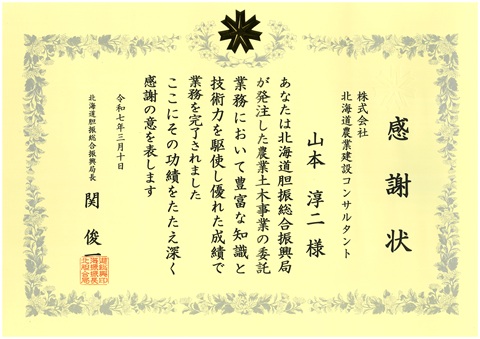 感謝状
株式会社
北海道農業建設コンサルタント
山本 淳二 様
あなたは北海道胆振総合振興局
が発注した農業土木事業の委託
業務において豊富な知識と
技術力を駆使し優れた成績で
業務を完了されました
ここにその功績をたたえ深く
感謝の意を表します
令和七年三月十日
北海道胆振総合振興局長
関 俊一